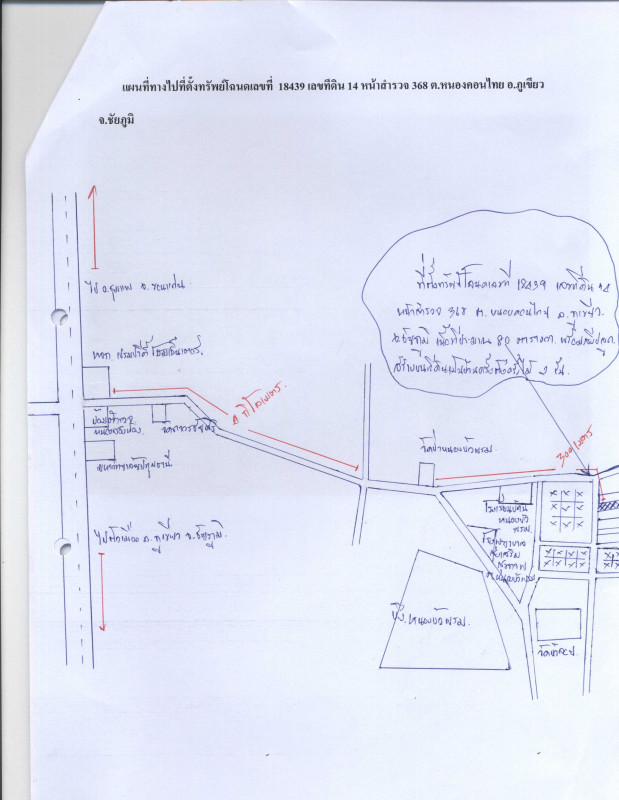 แผนที่ทางไปที่ตั้งทรัพย์โฉนดเลขที่ 18439 เลขที่ดิน 14 หน้าสำรวจ 368 ต.หนองคอนไทย อ.ภูเขียว
จ.ชัยภูมิ
ที่ตั้งทรัพย์โฉนดเลขที่ 18439 เลขที่ดิน 14
หน้าสำรวจ 368 ต. หนองคอนไทย อ.ภูเขียว
จ.ชัยภูมิ เนื้อที่ประมาณ 80 ตารางวา พร้อมสิ่งปลูก
สร้างบนที่ดินเป็นบ้านครึ่งตึกครึ่งไม้ 2 ชั้น
ไป อ.ชุมแพ จ.ขอนแก่น
หจก.
4 กิโลเมตร
300 เมตร
วัดป่าหนองบัวพรม
โรงเรียนบ้าน
หนองบัว
พรม
โรงพยาบาล
ส่งเสริม
สุขภาพ
ต.หนองบัวพรม
ไปตัวเมือง อ.ภูเขียว จ.ชัยภูมิ
บึงหนองบัวพรม